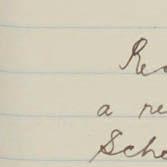 Rec
a re
Sche